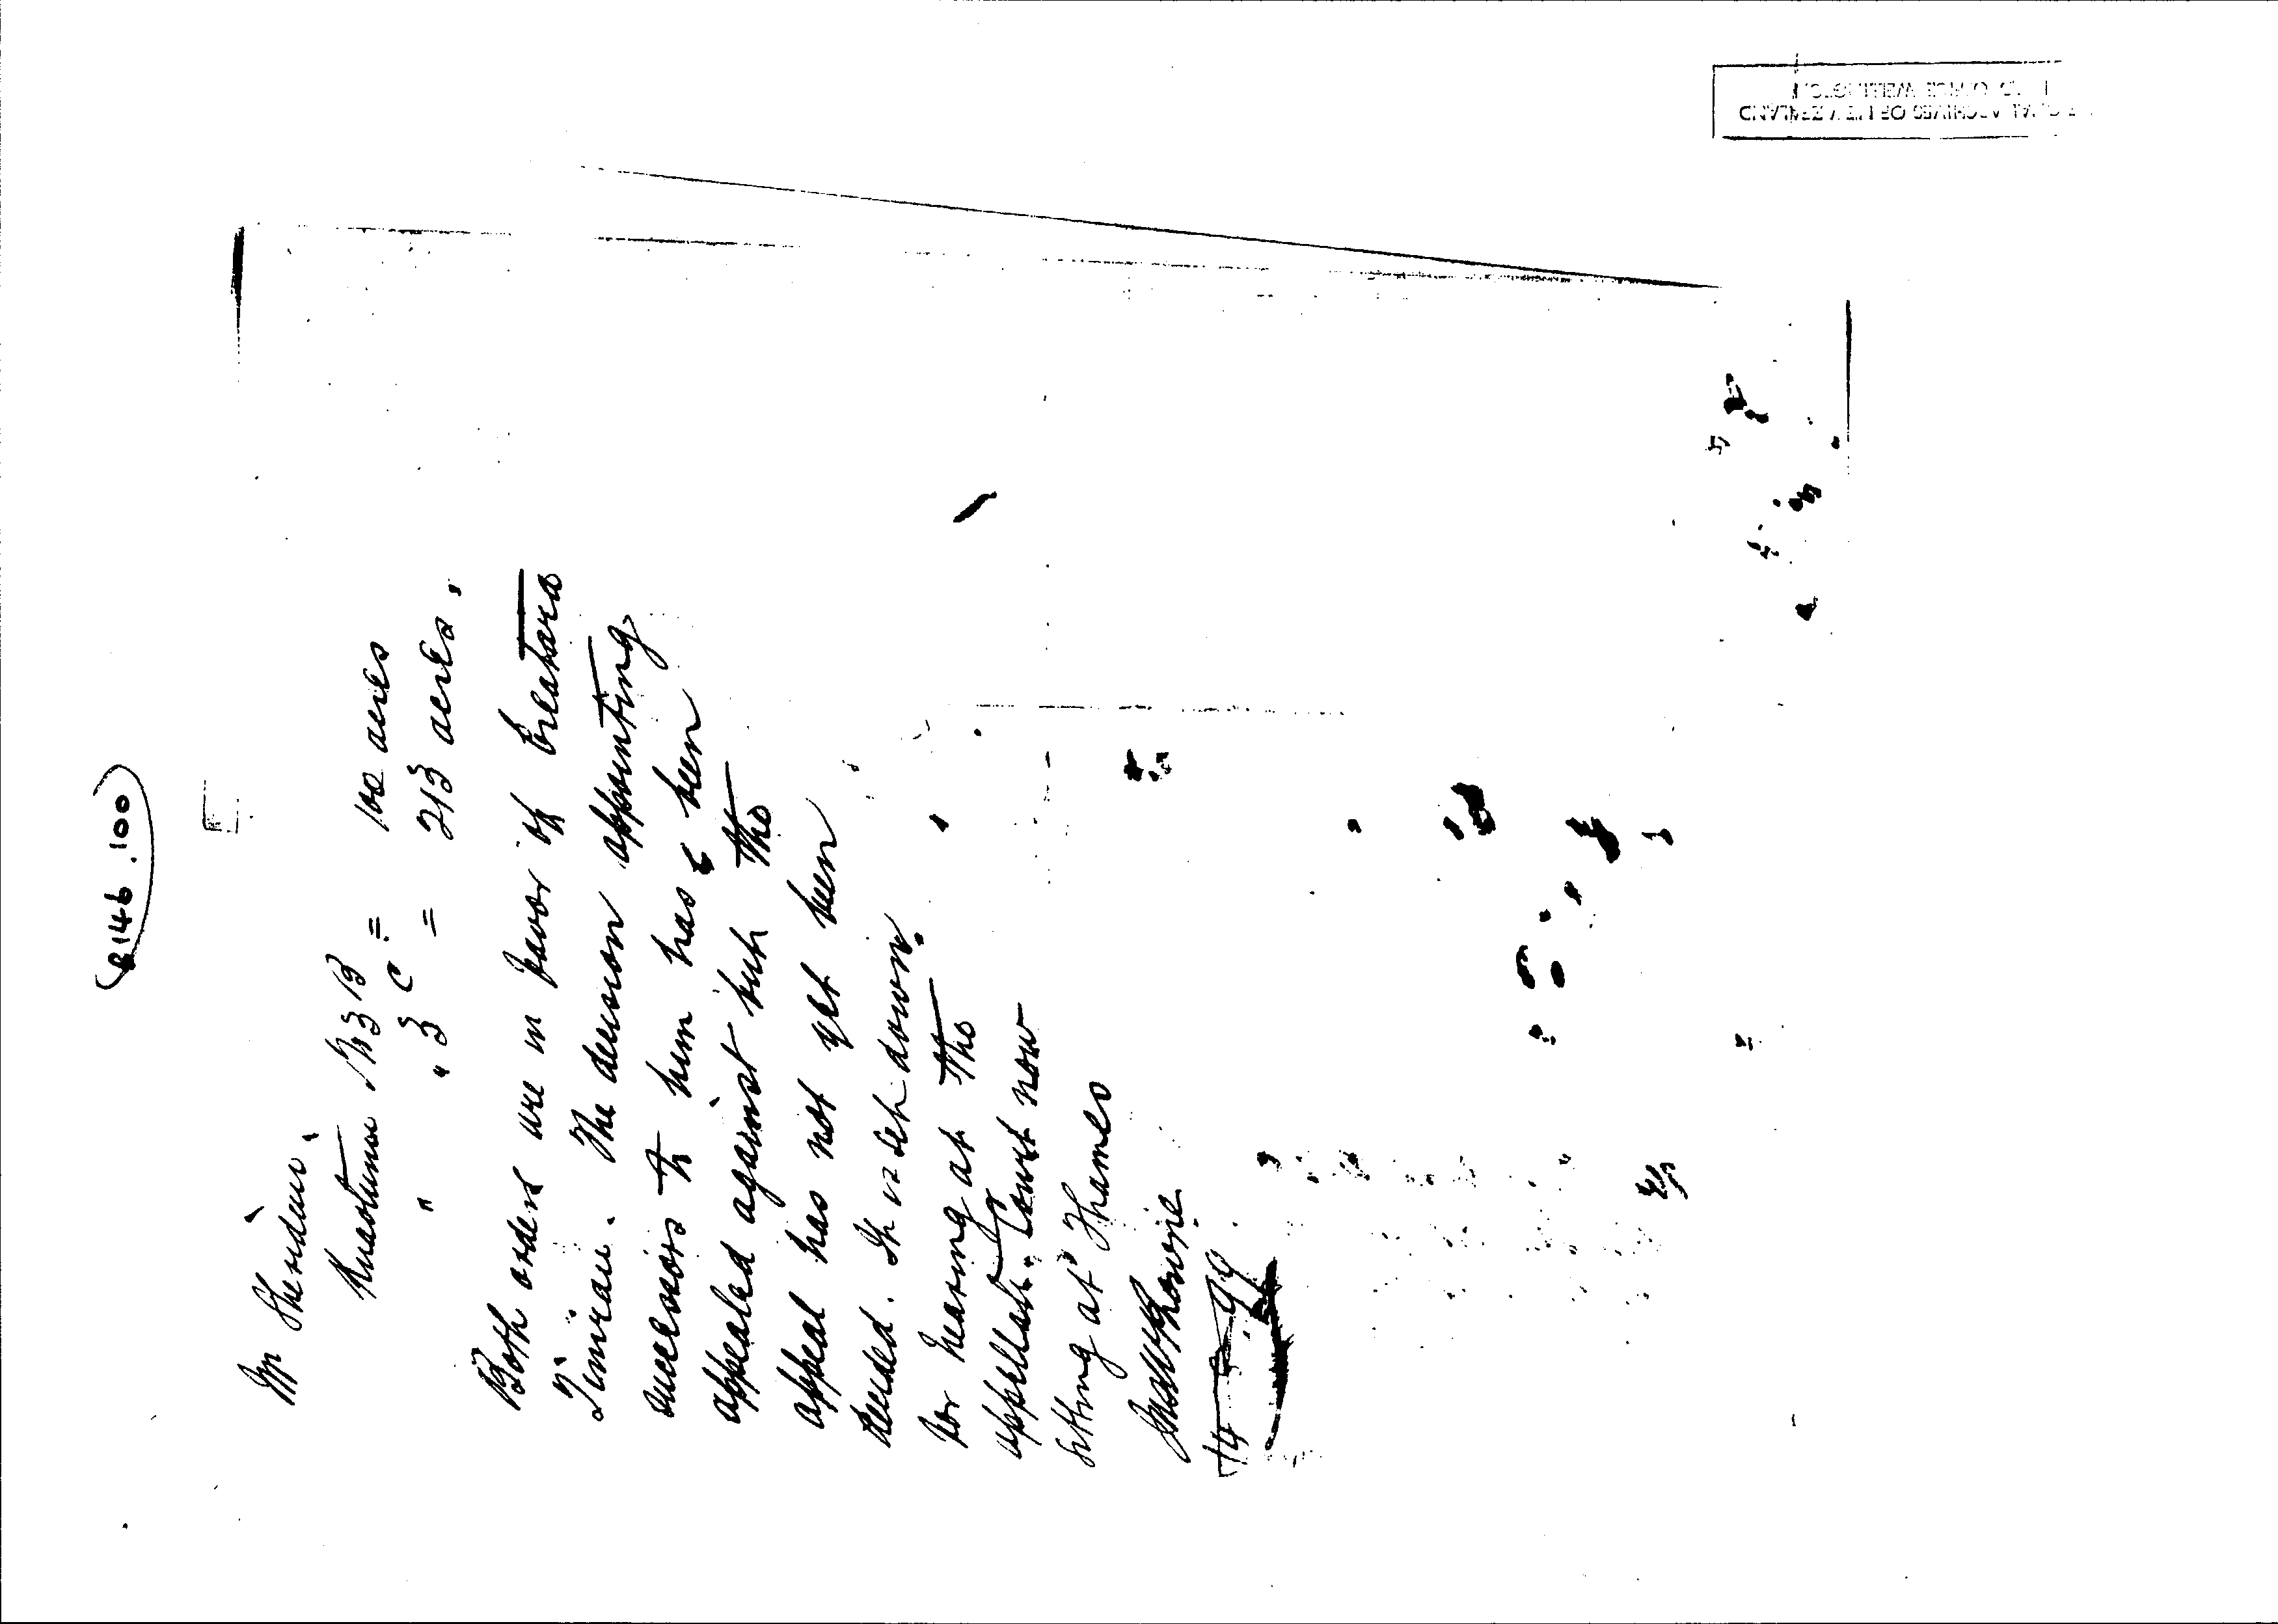 (A146.100)
Mr Sheridan
Kuaotunu No 3 B = 100 acres
" " 3 C = 213 acres.
Both orders are in favor of
Timirau. The decision appointing
successors to him has been
appealed against but the
appeal has not yet been
decided. It is set down
for hearing at the
appellate Court now
sitting at Thames
99
HEAD OFFICE WELLINGTON
NATIONAL ARCHIVES OF NEW ZEALAND